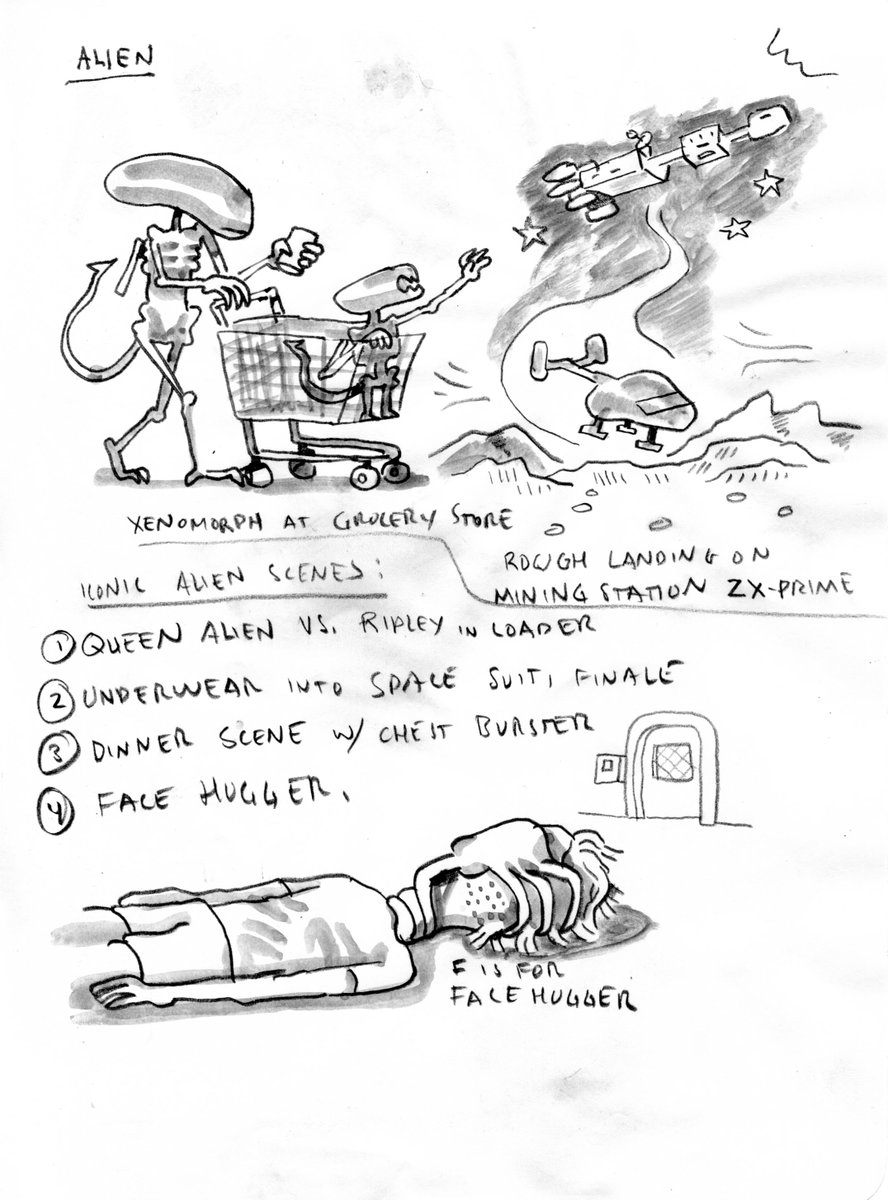 ALIEN
XENOMORPH AT GROCERY STORE
ROUGH LANDING ON
MINING STATION ZX-PRIME
ICONIC ALIEN SCENES:
1 QUEEN ALIEN VS. RIPLEY IN LOADER
2 UNDERWEAR INTO SPACE SUIT, FINALE
3 DINNER SCENE W/ CHEST BURSTER
4 FACE HUGGER.
F IS FOR
FACE HUGGER